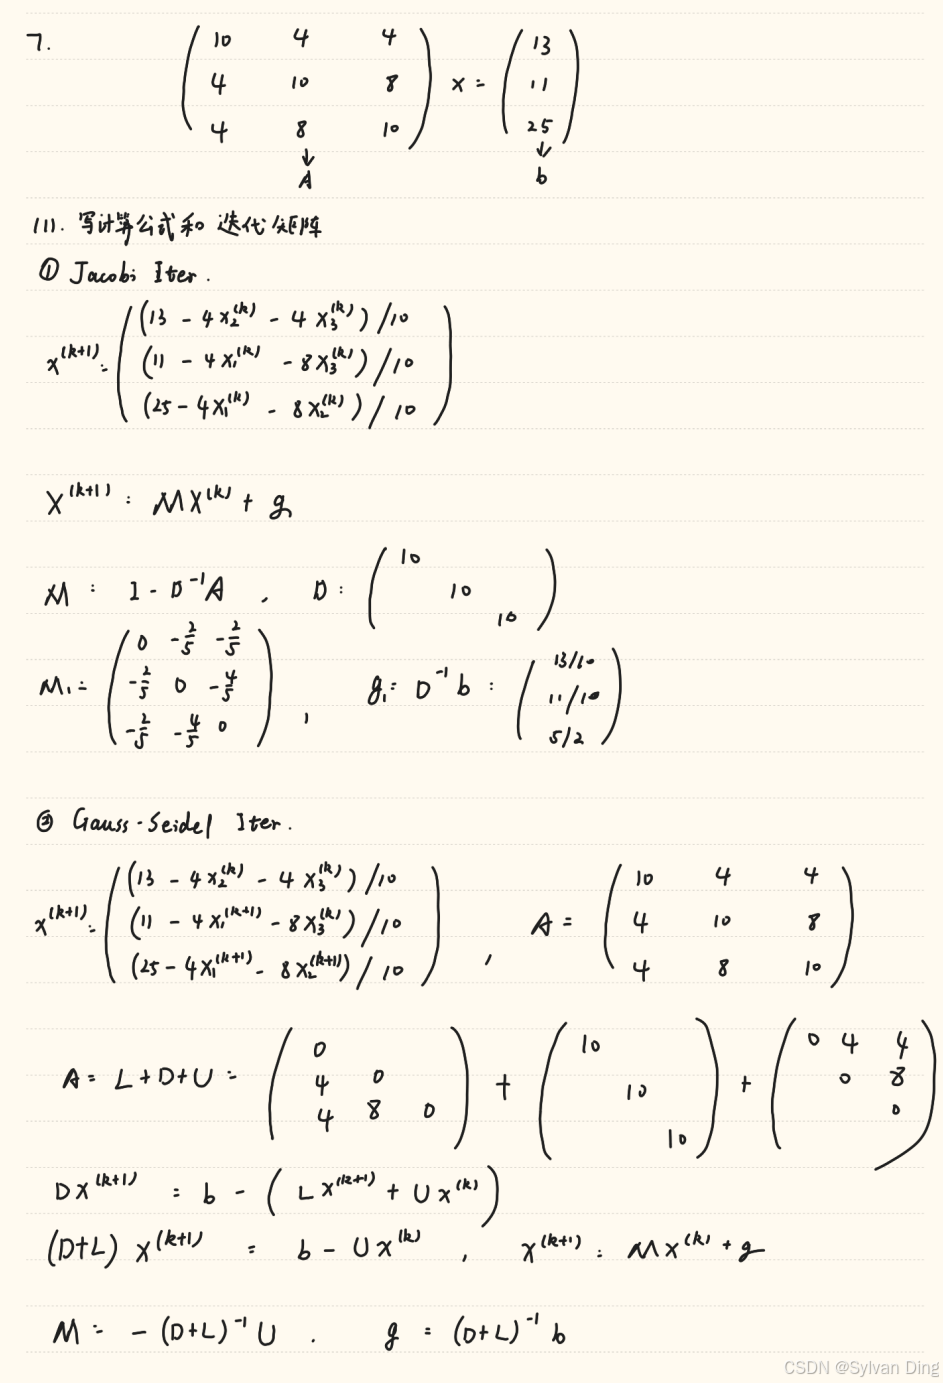 7. ( 10 4 4 ; 4 10 8 ; 4 8 10 ) x = ( 13 ; 11 ; 25 )
↓ ↓
A b
(1). 写计算公式和迭代矩阵
① Jacobi Iter.
(13 - 4x₂^(k) - 4x₃^(k)) / 10
x^(k+1) = (11 - 4x₁^(k) - 8x₃^(k)) / 10
(25 - 4x₁^(k) - 8x₂^(k)) / 10
X^(k+1) = MX^(k) + g
M = I - D⁻¹A , D = ( 10 ; 10 ; 10 )
M₁ = ( 0 -2/5 -2/5 ; -2/5 0 -4/5 ; -2/5 -4/5 0 ) , g₁ = D⁻¹b = ( 13/10 ; 11/10 ; 5/2 )
② Gauss-Seidel Iter.
(13 - 4x₂^(k) - 4x₃^(k)) / 10
x^(k+1) = (11 - 4x₁^(k+1) - 8x₃^(k)) / 10
(25 - 4x₁^(k+1) - 8x₂^(k+1)) / 10 , A = ( 10 4 4 ; 4 10 8 ; 4 8 10 )
A = L+D+U = ( 0 ; 4 0 ; 4 8 0 ) + ( 10 ; 10 ; 10 ) + ( 0 4 4 ; 0 8 ; 0 )
DX^(k+1) = b - ( LX^(k+1) + UX^(k) )
(D+L) X^(k+1) = b - UX^(k) , x^(k+1) = Mx^(k) + g
M = - (D+L)⁻¹ U . g = (D+L)⁻¹ b
CSDN @Sylvan Ding